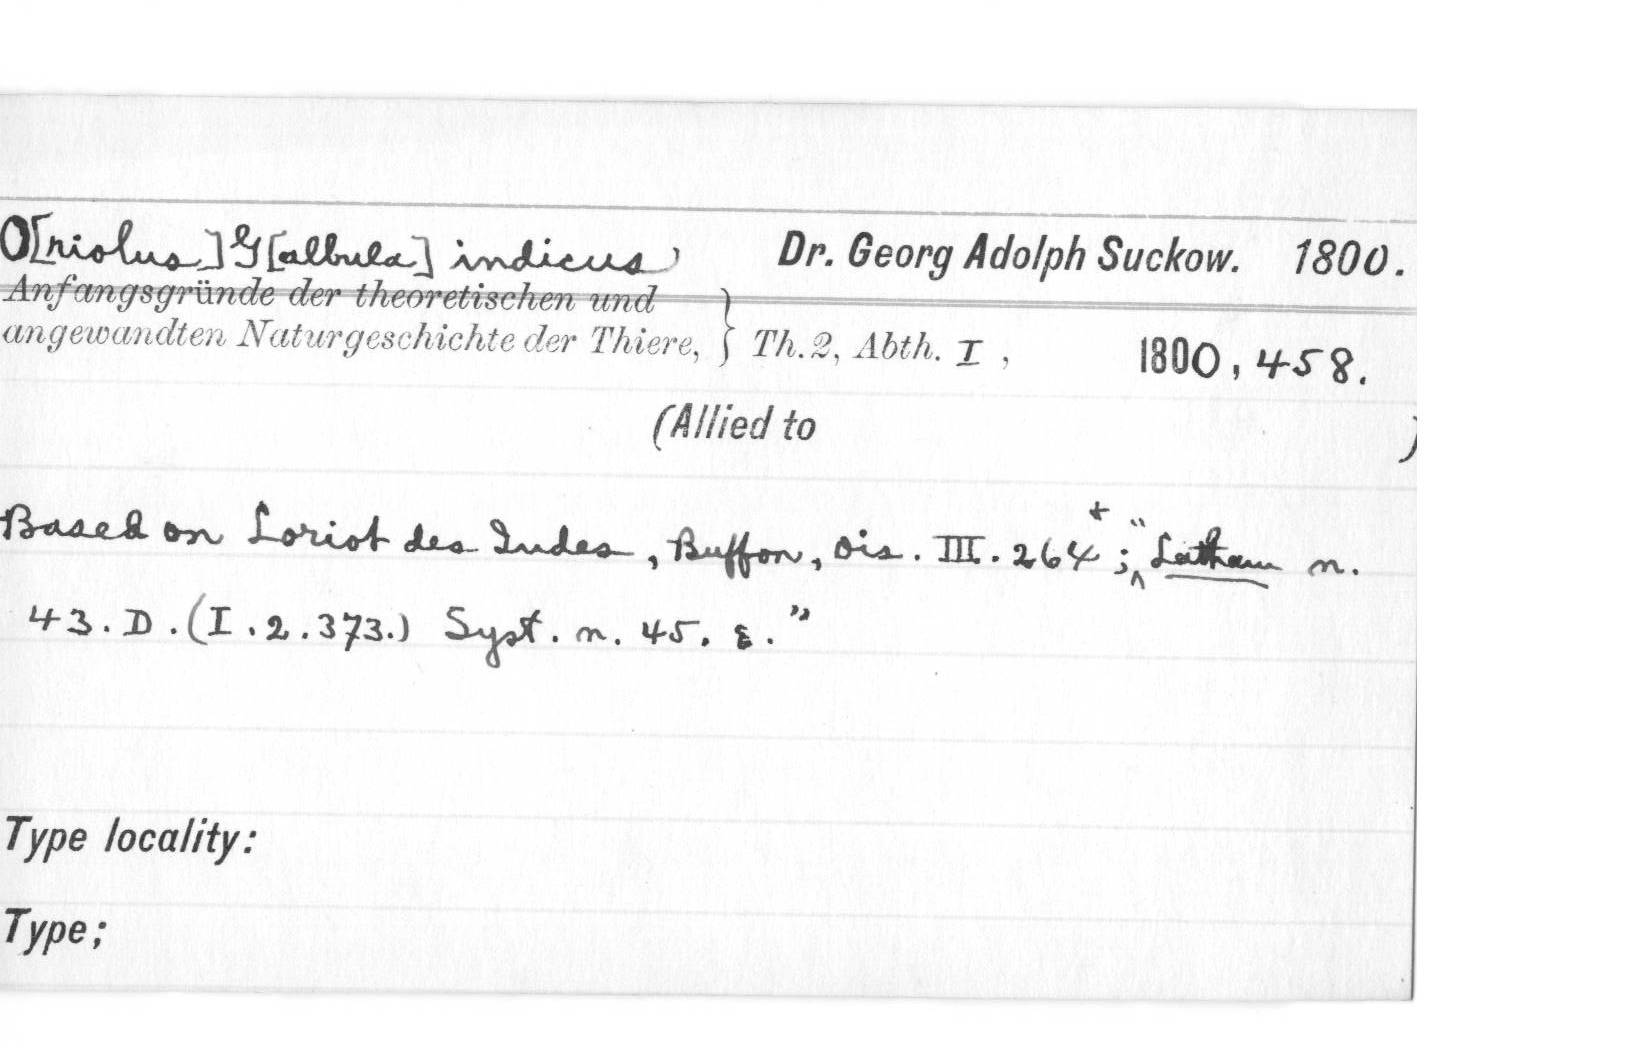 O[riolus] G[albula] indicus, Dr. Georg Adolph Suckow. 1800.
Anfangsgründe der theoretischen und
angewandten Naturgeschichte der Thiere, } Th. 2, Abth. I, 1800, 458.
(Allied to )
Based on Loriot des Indes, Buffon, Ois. III. 264+; "Latham n.
43. D. (I. 2. 373.) Syst. n. 45. ε."
Type locality:
Type;